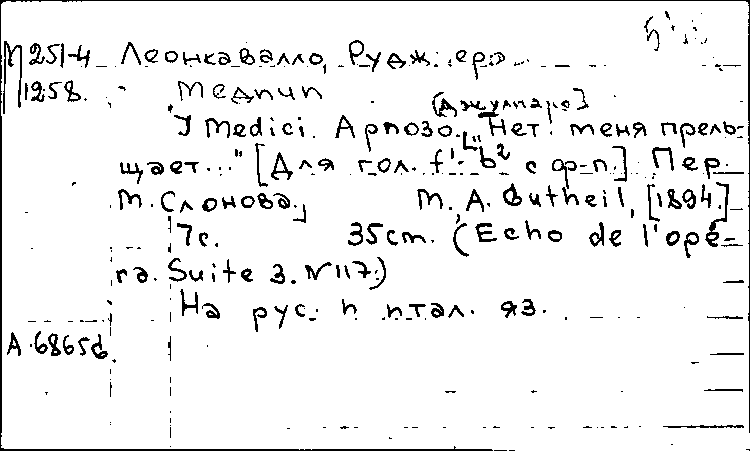 М 251-4 Леонкавалло, Руджиеро
1258. Медичи
(Джулиано)
"I Medici. Ариозо. "Нет! меня прель-
щает..." [Для гол. f¹-b² с ф-п.] Пер.
М. Слонова. М., A. Gutheil, [1894.]
7с. 35cm. (Echo de l'opé-
ra. Suite 3. N 117.)
На рус. и итал. яз.
А.6865б.